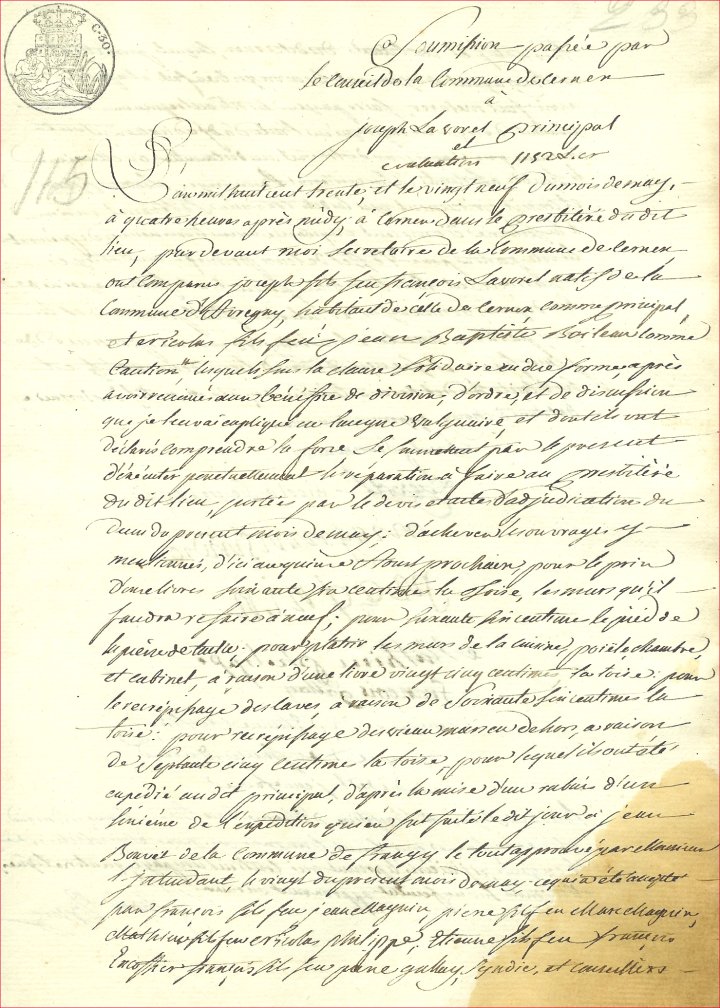 233
C. 50.
Soumission passée par
le Conseil de la Commune de Cernex
à
joseph Lavorel principal
et
evaluation 1152 L.
115
L'an mil huit cent trente, et le vingt neuf du mois de may,
à quatre heures après midy, à Cernex dans le presbitère du dit
lieu, par devant moi Secrétaire de la Commune de Cernex
ont comparus joseph fils feu françois Lavorel natif de la
Commune d'Avregny, habitant de célle de Cernex comme principal,
et Nicolas fils feu jean Baptiste Boileau comme
Caution, lesquels sous la clause Solidaire en due forme après
avoir renoncé aux bénéfice de division, d'ordre, et de discussion
que je leur ai expliqué en langue vulguaire, et dont ils ont
déclarés comprendre la force Se soumettent par le présent
d'éxécuter ponctuellement les réparation à faire au Presbitère
du dit lieu, portées par le devis et acte d'adjudication du
du présent mois de may: d'achever les ouvrages y
mentionnés, d'ici au quinze Aoust prochain, pour le prix
d'onze livres soixante centimes la Toise, les murs qu'il
faudra refaire à neuf; pour soixante six centimes le pied de
la pière de taille: pour platrir les murs de la cuisine, poile chambre,
et cabinet, à raison d'une livre vingt cinq centimes la toise: pour
le recrépissage des laves à raison de Soixante six centimes la
toise: pour recrépissage des vieux murs en dehors, a raison
de Septante cinq Centime la toise, pour lequel ils ont été
expédié audit principal, d'après la mise d'un rabais d'un
Sixieme de l'expédition qui en fut faite le dit jour à jean
Bouvet de la Commune de frangy le tout approuvé par Monsieur
l'jntendant, le vingt du présent mois de may ce qui a été accepté
par françois fils feu jean Magnin, pierre fils feu Marc Magnin,
Mathieu fils feu Nicolas philippe, Etienne fils feu françois
Encoffier françois fils feu pierre gallay, Syndic, et Conseillers